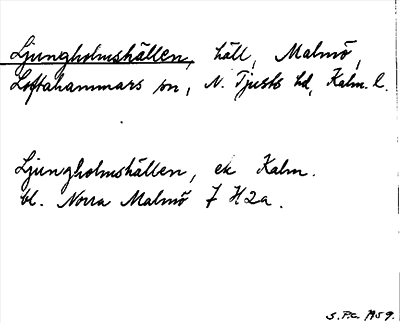 Ljungholmshällen, häll, Malmö,
Loftahammars sn, N. Tjusts hd, Kalm. l.
Ljungholmshällen, ek Kalm.
bl. Norra Malmö 7 H2a.
S.P.C. 1959.